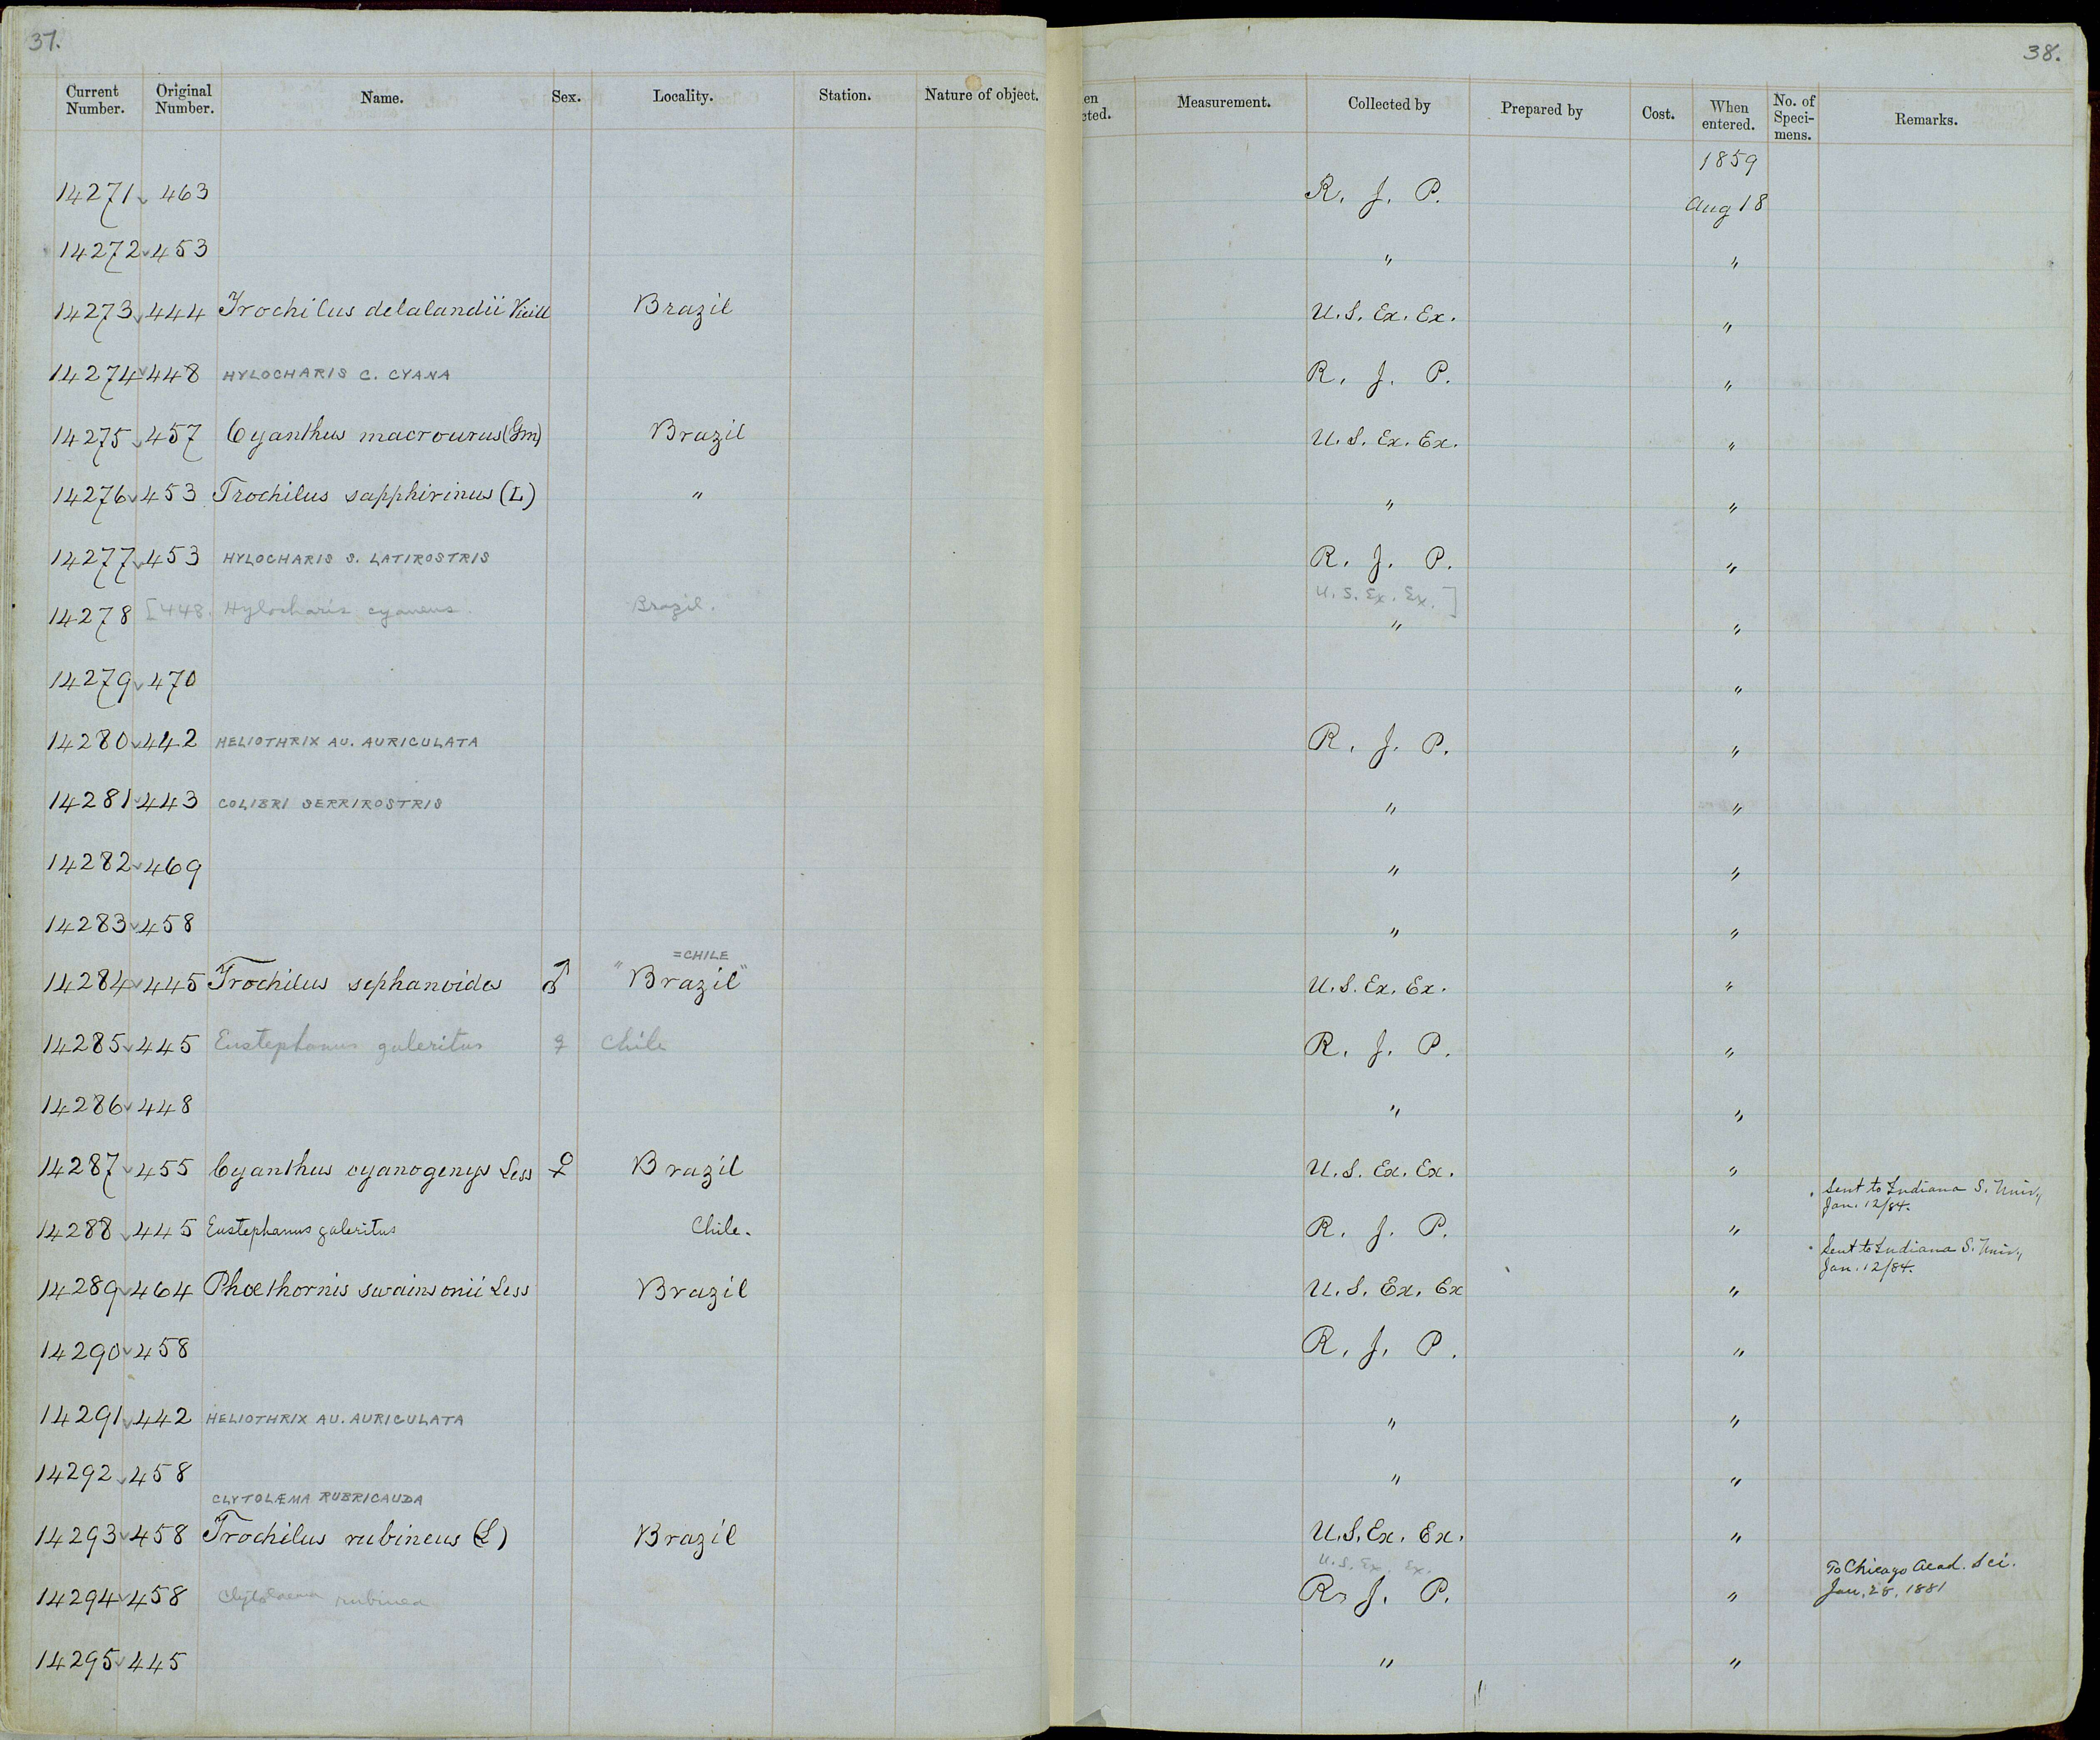 37.
38.
Current Number. Original Number. Name. Sex. Locality. Station. Nature of object. en cted. Measurement. Collected by Prepared by Cost. When entered. No. of Speci-mens. Remarks.
1859
14271 463 R. J. P. Aug 18
14272 453 " "
14273 444 Trochilus delalandii Vieill Brazil U.S. Ex. Ex. "
14274 448 HYLOCHARIS C. CYANA R. J. P. "
14275 457 Cyanthus macrourus (Gm) Brazil U.S. Ex. Ex. "
14276 453 Trochilus sapphirinus (L) " " "
14277 453 HYLOCHARIS S. LATIROSTRIS R. J. P. "
14278 [448. Hylocharis cyaneus. Brazil. U.S. Ex. Ex.] " "
14279 470 "
14280 442 HELIOTHRIX AU. AURICULATA R. J. P. "
14281 443 COLIBRI SERRIROSTRIS " "
14282 469 " "
14283 458 " "
=CHILE
14284 445 Trochilus sephanoides ♂ "Brazil" U.S. Ex. Ex. "
14285 445 Eustephanus galeritus ♀ Chile R. J. P. "
14286 448 " "
14287 455 Cyanthus cyanogenys Less ♀ Brazil U.S. Ex. Ex. "
Sent to Indiana S. Univ,
Jan. 12/84.
14288 445 Eustephanus galeritus Chile. R. J. P. "
Sent to Indiana S. Univ,
Jan. 12/84.
14289 464 Phœthornis swainsonii Less Brazil U.S. Ex. Ex "
14290 458 R. J. P. "
14291 442 HELIOTHRIX AU. AURICULATA " "
14292 458 " "
CLYTOLÆMA RUBRICAUDA
14293 458 Trochilus rubineus (L) Brazil U.S. Ex. Ex. "
U.S. Ex. Ex.
To Chicago Acad. Sci.
14294 458 Clytolaema rubinea R. J. P. " Jan. 28, 1881
14295 445 " "